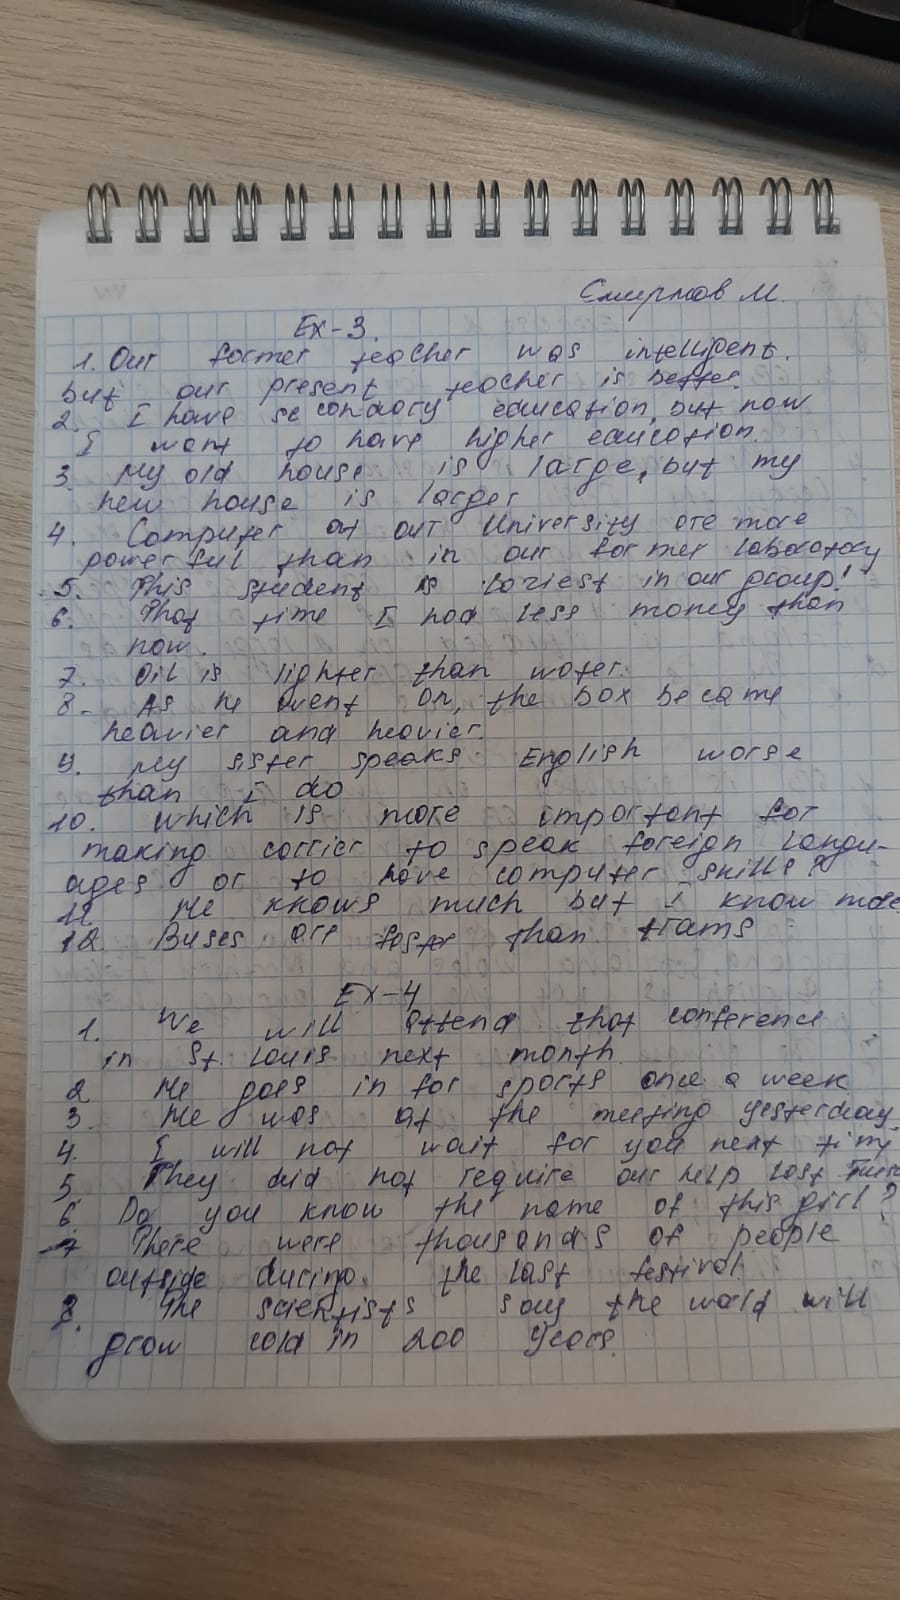 Смирнов М.
Ex-3.
1. Our former teacher was intelligent.
but our present teacher is better.
2. I have secondary education, but now
I want to have higher education.
3. My old house is large, but my
new house is larger
4. Computer at our University are more
powerful than in our former laboratory
5. This student is laziest in our group!
6. That time I had less money than
now.
7. Oil is lighter than water.
8. As he went on, the box became
heavier and heavier.
9. My sister speaks English worse
than I do
10. Which is more important for
making carrier to speak foreign langu-
ages or to have computer skills?
11. He knows much but I know more
12. Buses are faster than trams
Ex-4
1. We will attend that conference
in St. Louis next month.
2. He goes in for sports once a week
3. He was at the meeting yesterday.
4. I will not wait for you next time
5. They did not require our help last
6. Do you know the name of this girl?
7 There were thousands of people
outside during the last festival.
8. The scientists say the world will
grow cold in 200 years.